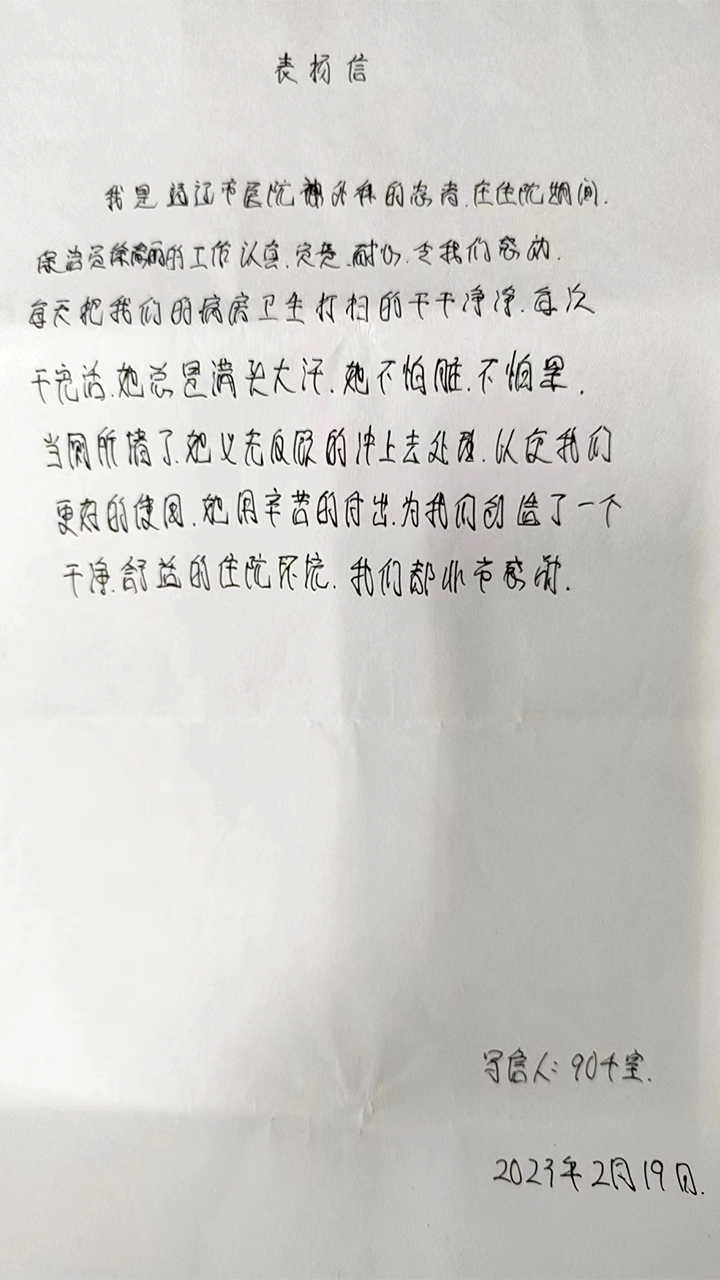 表扬信
我是 市医院神外科的患者.在住院期间.
保洁员徐 丽的工作认真.完美.耐心.令我们感动.
每天把我们的病房卫生打扫的干干净净.每次
干完活.她总是满头大汗.她不怕脏.不怕累.
当厕所堵了.她义无反顾的冲上去处理.以便我们
更好的使用.她用辛苦的付出.为我们创造了一个
干净.舒适的住院环境.我们都非常感谢.
写信人:904室.
2023年2月19日.